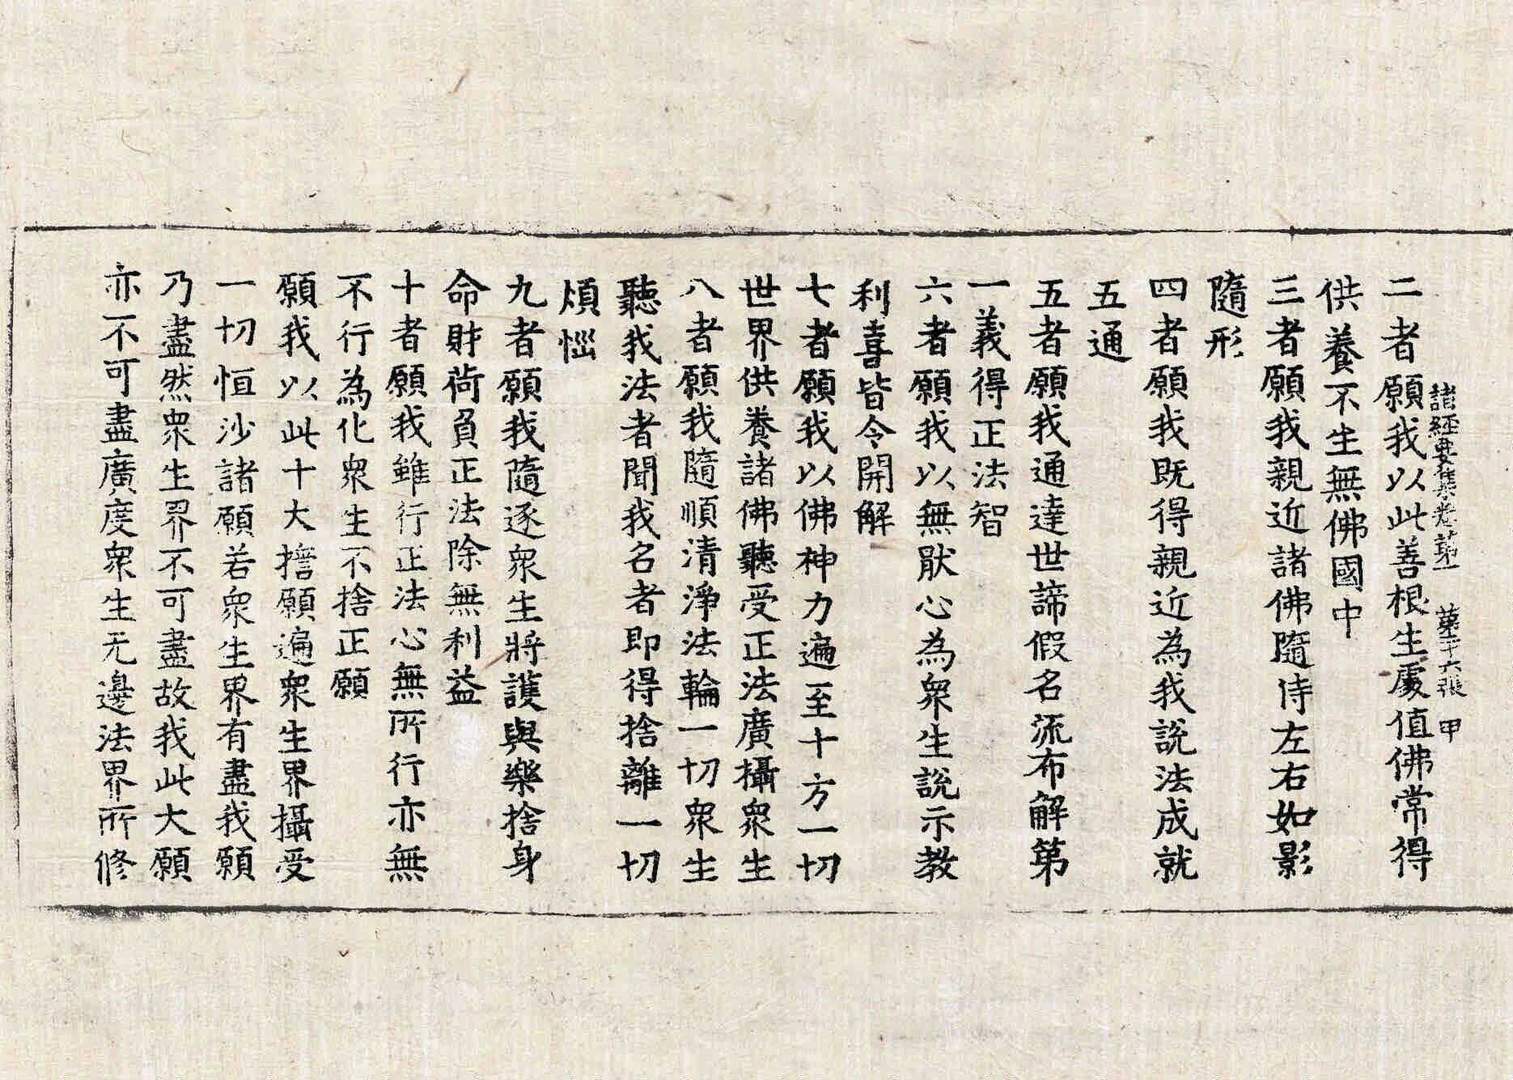 諸經要集卷第一 第二十六張 甲
二者願我以此善根生處值佛常得
供養不生無佛國中
三者願我親近諸佛隨侍左右如影
隨形
四者願我既得親近為我說法成就
五通
五者願我通達世諦假名流布解第
一義得正法智
六者願我以無猒心為衆生說示教
利喜皆令開解
七者願我以佛神力遍至十方一切
世界供養諸佛聽受正法廣攝衆生
八者願我隨順清淨法輪一切衆生
聽我法者聞我名者即得捨離一切
煩惱
九者願我隨逐衆生將護與樂捨身
命財荷負正法除無利益
十者願我雖行正法心無所行亦無
不行為化衆生不捨正願
願我以此十大擔願遍衆生界攝受
一切恒沙諸願若衆生界有盡我願
乃盡然衆生界不可盡故我此大願
亦不可盡廣度衆生无邊法界所修